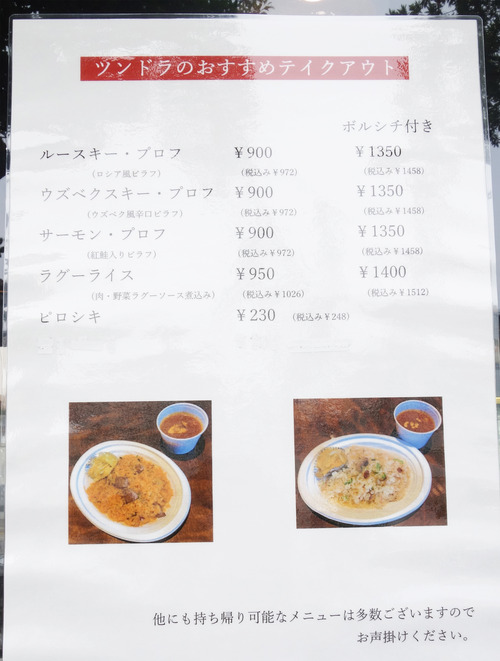 ツンドラのおすすめテイクアウト
ボルシチ付き
ルースキー・プロフ ￥900 ￥1350
（ロシア風ピラフ） （税込み￥972） （税込み￥1458）
ウズベクスキー・プロフ ￥900 ￥1350
（ウズベク風辛口ピラフ） （税込み￥972） （税込み￥1458）
サーモン・プロフ ￥900 ￥1350
（紅鮭入りピラフ） （税込み￥972） （税込み￥1458）
ラグーライス ￥950 ￥1400
（肉・野菜ラグーソース煮込み） （税込み￥1026） （税込み￥1512）
ピロシキ ￥230 （税込み￥248）
他にも持ち帰り可能なメニューは多数ございますので
お声掛けください。